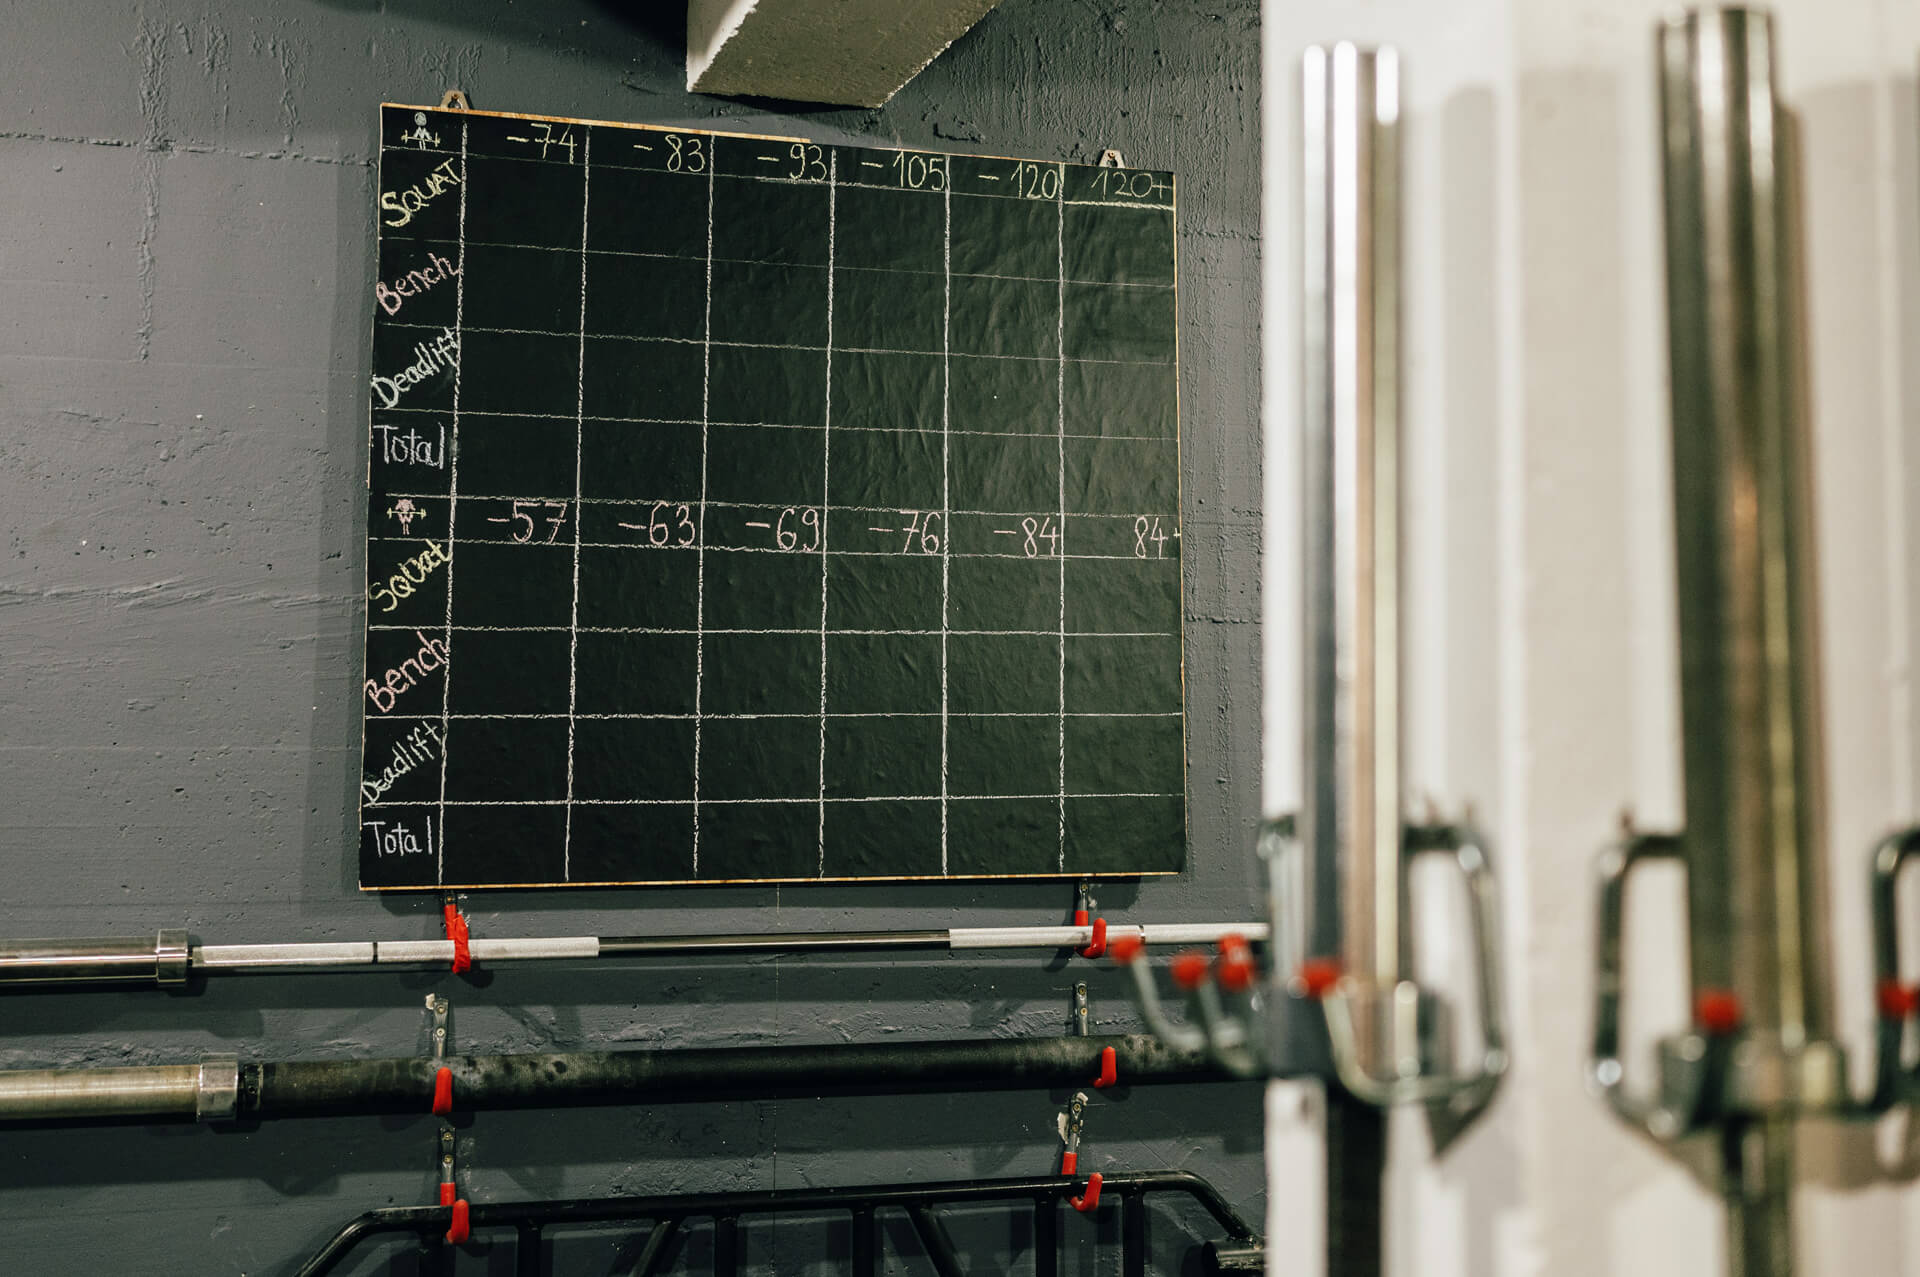 -74 -83 -93 -105 -120 120+
SQUAT
Bench
Deadlift
Total
-57 -63 -69 -76 -84 84+
Squat
Bench
Deadlift
Total